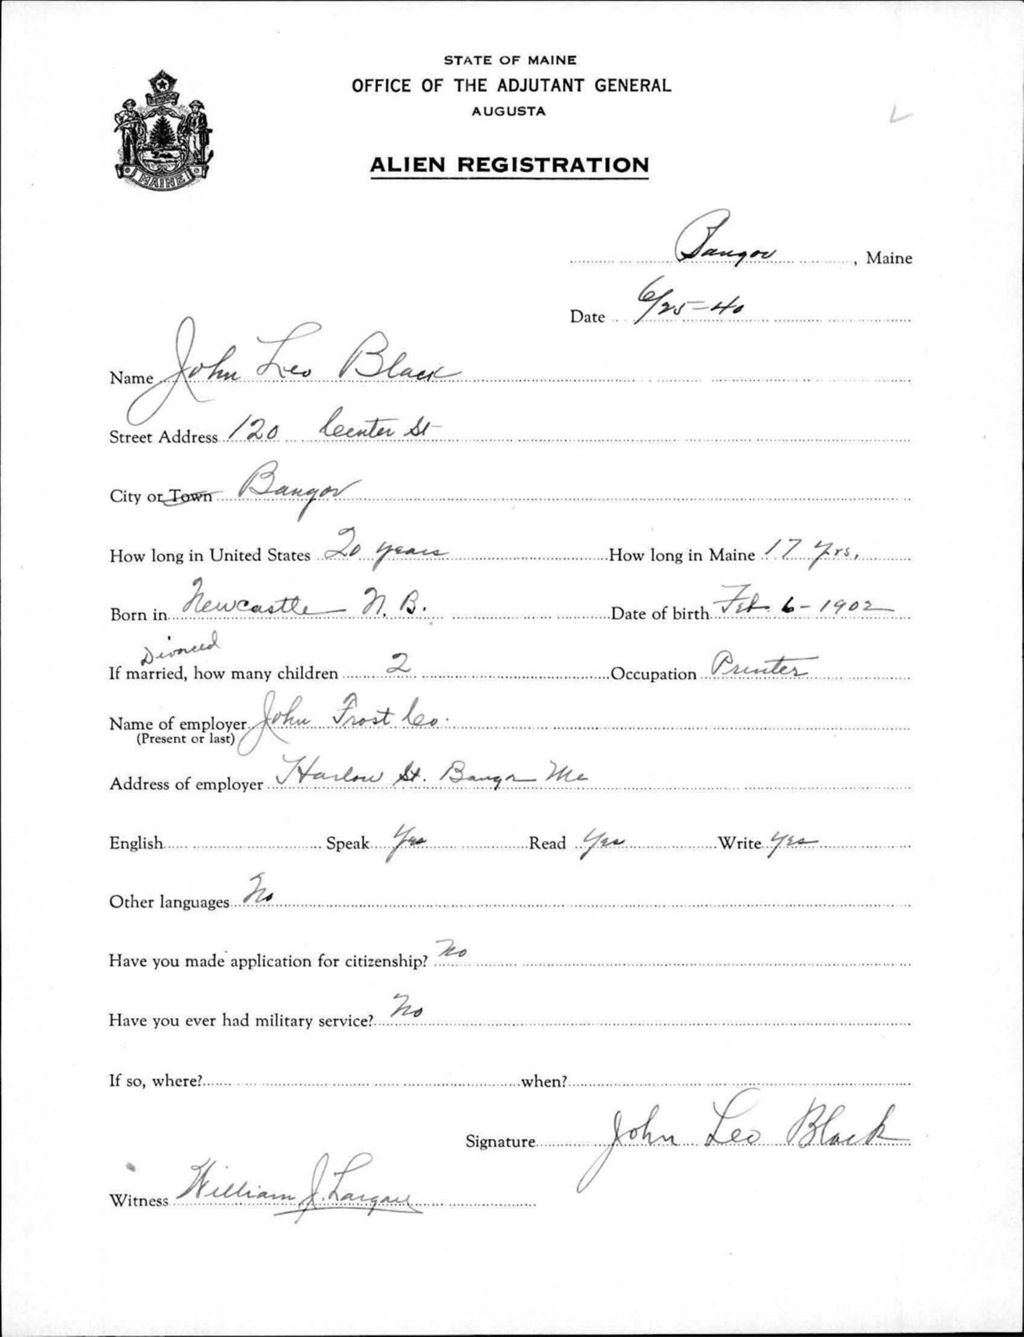 STATE OF MAINE
OFFICE OF THE ADJUTANT GENERAL
AUGUSTA
ALIEN REGISTRATION
MAINE
Bangor, Maine
Date 6/25-40
Name John Leo Black
Street Address 120 Center St
City or Town Bangor
How long in United States 20 years How long in Maine 17 Yrs.
Born in Newcastle N.B. Date of birth Feb 6-1902
Divorced
If married, how many children 2 Occupation Printer
Name of employer John Frost Co.
(Present or last)
Address of employer Harlow St. Bangor Me
English Speak Yes Read Yes Write Yes
Other languages No
Have you made application for citizenship? No
Have you ever had military service? No
If so, where? when?
Signature John Leo Black
Witness William J.